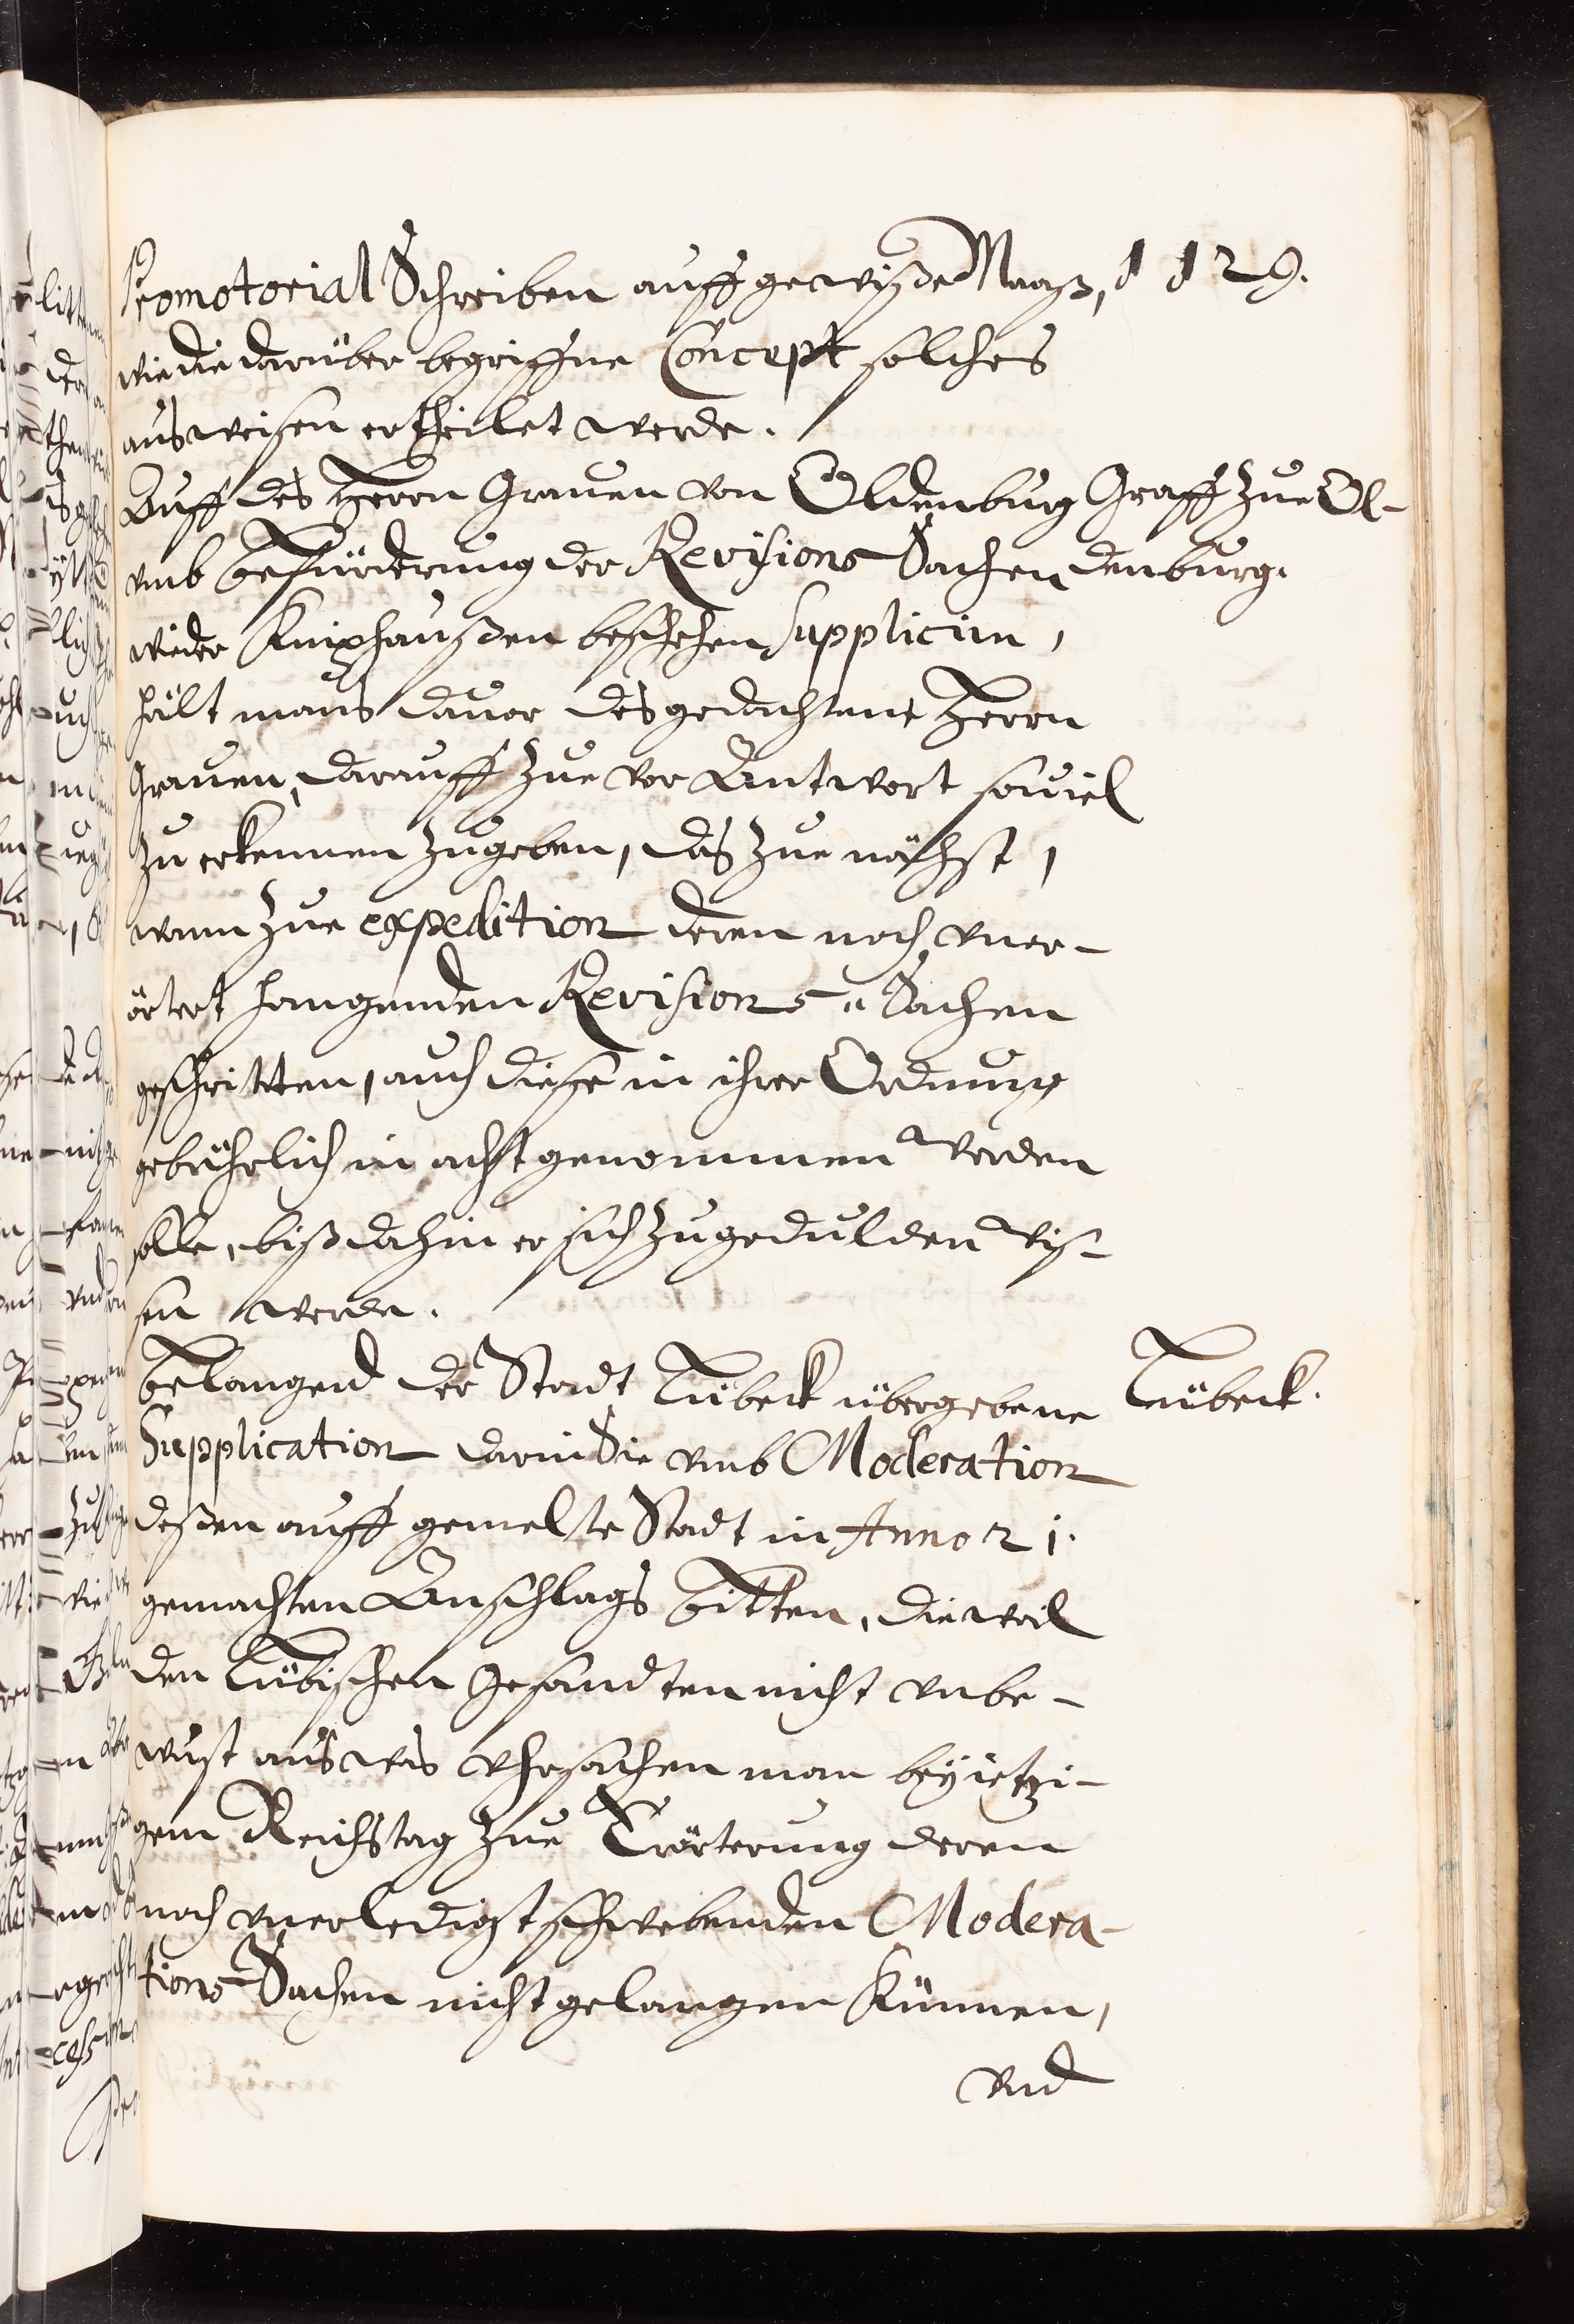 Promotorial Schreiben auff gewiße Maaß, 1129.
wie die darüber begriffne Concept solches
ausweisen ertheilet werde.
Auff des Herrn Grauen von Oldenburg
Graff zue Ol-
vmb befürderung der Revisions Sachen
denburg.
wieder Kniphaußen beschehen Supplicirn,
hält mans dauor des gedachtem Herrn
Grauen, darauff zue vor Antwort souiel
zu erkennen zugeben, das zue nächst,
wann zue expedition deren noch vner-
örtert hangenden Revisions-Sachen
geschritten, auch diese in ihrer Ordnung
gebührlich in acht genommen werden
solle, biß dahin er sich zugedulden wis-
sen werde.
Belangend der Stadt Lübeck übergebene
Lübeck.
Supplication darin Sie vmb Moderation
deßen auff gemelte Stadt in Anno 21.
gemachten Anschlags bitten, dieweil
den Lübischen Gesandten nicht vnbe-
wust aus was vhrsachen man bey ietzi-
gem Reichstag zue Erörterung deren
noch vnerledigt schwebenden Modera-
tions Sachen nicht gelangen können,
vnd